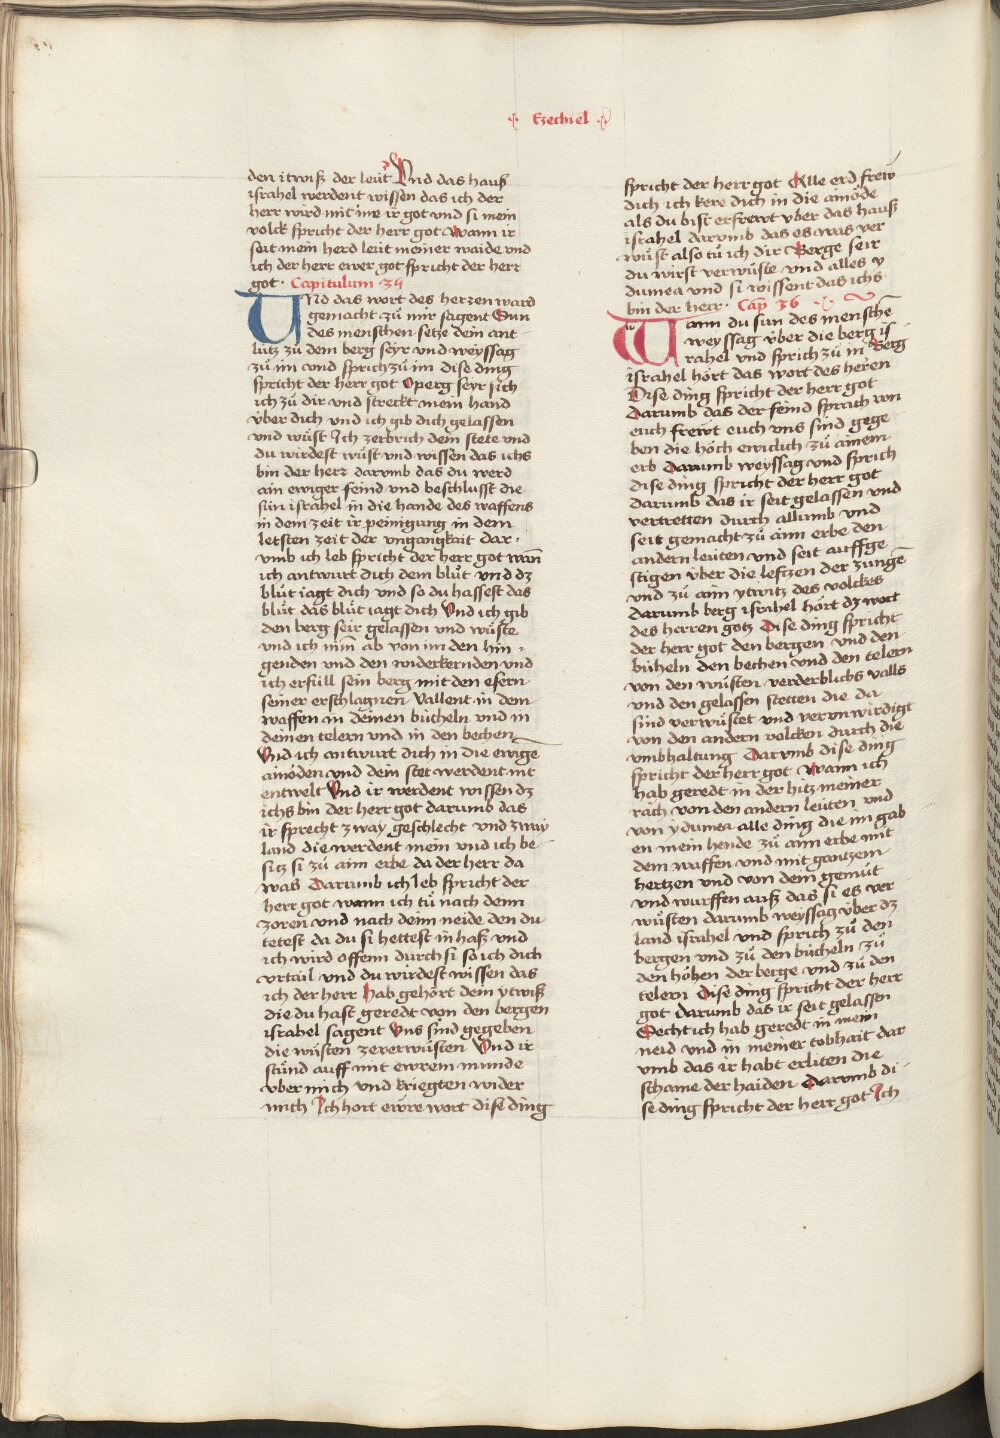 Ezechiel
den itwiß der leüt Vnd das hauß
israhel werdent wissen das ich der
herr wird mit ine ir got vnd si mein
volck spricht der herr got Wann ir
seit mein herd leüt meiner waide vnd
ich der herr ewer got spricht der herr
got · Capitulum · 35
Vnd das wort des herren ward
gemacht zů mir sagent Sun
des menschen setze dein ant
lütz zů dem berg seyr vnd weyssag
zů im vnd sprich zů im dise ding
spricht der herr got O perg seyr sich
ich zů dir vnd streckt mein hand
vber dich vnd ich gib dich gelassen
vnd wüst Ich zerbrich dein stete vnd
du wirdest wüst vnd wissen das ichs
bin der herr darvmb das du werd
ain ewiger feind vnd beschlusst die
sün israhel in die hande des waffens
in dem zeit ir peinigung in dem
letsten zeit der vngangkait dar ·
vmb ich leb spricht der herr got wan̄
ich antwurt dich dem blůt vnd dz
blüt iagt dich vnd so du hassest das
blüt das blüt iagt dich Vnd ich gib
den berg seir gelassen vnd wüste
vnd ich nim̄ ab von im den hin ·
genden vnd den widerkernden vnd
ich erfüll sein berg mit den esern
seiner erschlagnen Vallent in dem
waffen in deinen bücheln vnd in
deinen telern vnd in den bechen
Vnd ich antwurt dich in die ewigē
ainöden vnd dein stet werdent nit
entwelt Vnd ir werdent wissen dz
ichs bin der herr got darumb das
ir sprecht zway geschlecht vnd zway
land die werdent mein vnd ich be
sitz si zů aim erbe da der herr da
was Darumb ich leb spricht der
herr got wann ich tů nach deim
zoren vnd nach deim neide den du
tetest da du si hettest in haß vnd
ich wird offenn durch si so ich dich
vrtail vnd du wirdest wissen das
ich der herr hab gehört dein ytwiß
die du hast geredt von den bergen
israhel sagent Vns sind gegeben
die wüsten zeverwüsten Vnd ir
stünd auff mit ewrem munde
vber mich vnd kriegten wider
mich Ich hort ewre wort dise ding
spricht der herr got Alle erd frew
dich ich kere dich in die ainöde
als du bist erfrewt vber das hauß
israhel darvmb das es was ver
wüst also tů ich dir Berge seir
du wirst verwüste vnd alles y
dumea vnd si wissent das ichs
bin der herr · Cap̄ 36
Wann du sun des menschē
weyssag vber die berg is
rahel vnd sprich zů in Berg
israhel hört das wort des heren
Dise ding spricht der herr got
darumb das der feind sprach von
euch frewt euch vns sind gege
ben die höch ewiclich zů ainem
erb Darumb weyssag vnd sprich
dise ding spricht der herr got
darumb das ir seit gelassen vnd
vertretten durch allumb vnd
seit gemacht zů aim erbe den
andern leüten vnd seit auffge
stigen vber die lefzen der zungē
vnd zů aim ytwitz des volckes
darumb berg israhel hört dz wort
des herren gotz Dise ding spricht
der herr got den bergen vnd den
büheln den bechen vnd den telern
von den wüsten verderblichs valls
vnd den gelassen stetten die da
sind verwüstet vnd vervnwirdigt
von den andern volcken durch die
vmbhaltung Darvmb dise ding
spricht der herr got Wann ich
hab geredt in der hitz meiner
räch von den andern leüten vnd
von ydumea alle ding die im gab
en mein hende zů aim erbe mit
dem waffen vnd mit gantzem
hertzen vnd von dem gemüt
vnd wurffen auß das si es ver
wüsten darumb weyssag vber dz
land israhel vnd sprich zů den
bergen vnd zů den bücheln zů
den höhen der berge vnd zů den
telern Dise ding spricht der herr
got darumb das ir seit gelassen
Secht ich hab geredt in mein
neid vnd in meiner tobhait dar
vmb das ir habt erliten die
schame der haiden Darvmb di ·
se ding spricht der herr got Ich